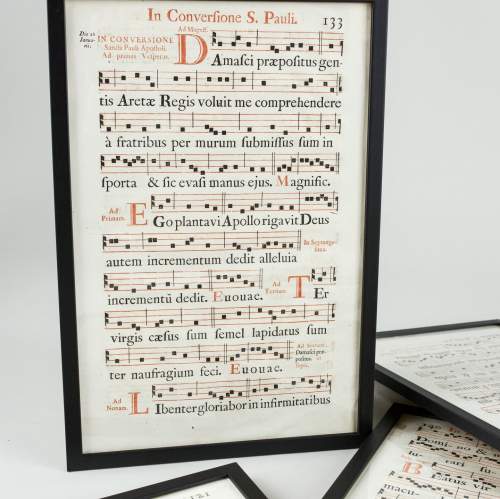 In Converſione S. Pauli.
133
Die 25
Janua-
rii.
IN CONVERSIONE
Sancti Pauli Apoſtoli.
Ad primas Veſperas.
Ad Magnif.
DAmaſci præpoſitus gen-
tis Aretæ Regis voluit me comprehendere
à fratribus per murum ſubmiſſus ſum in
ſporta & ſic evaſi manus ejus. Magnific.
Ad
Primam.
EGo plantavi Apollo rigavit Deus
In Septuage-
ſima.
autem incrementum dedit alleluia
incrementū dedit. Euouae.
Ad
Tertiam.
TEr
virgis cæſus ſum ſemel lapidatus ſum
ter naufragium feci. Euouae.
Ad Sextam.
Damaſci præ-
poſitus. ut
ſupra.
Ad
Nonam.
LIbenter gloriabor in infirmitatibus
121
140
Domino &
rari ſu
BEatus vir
macu-